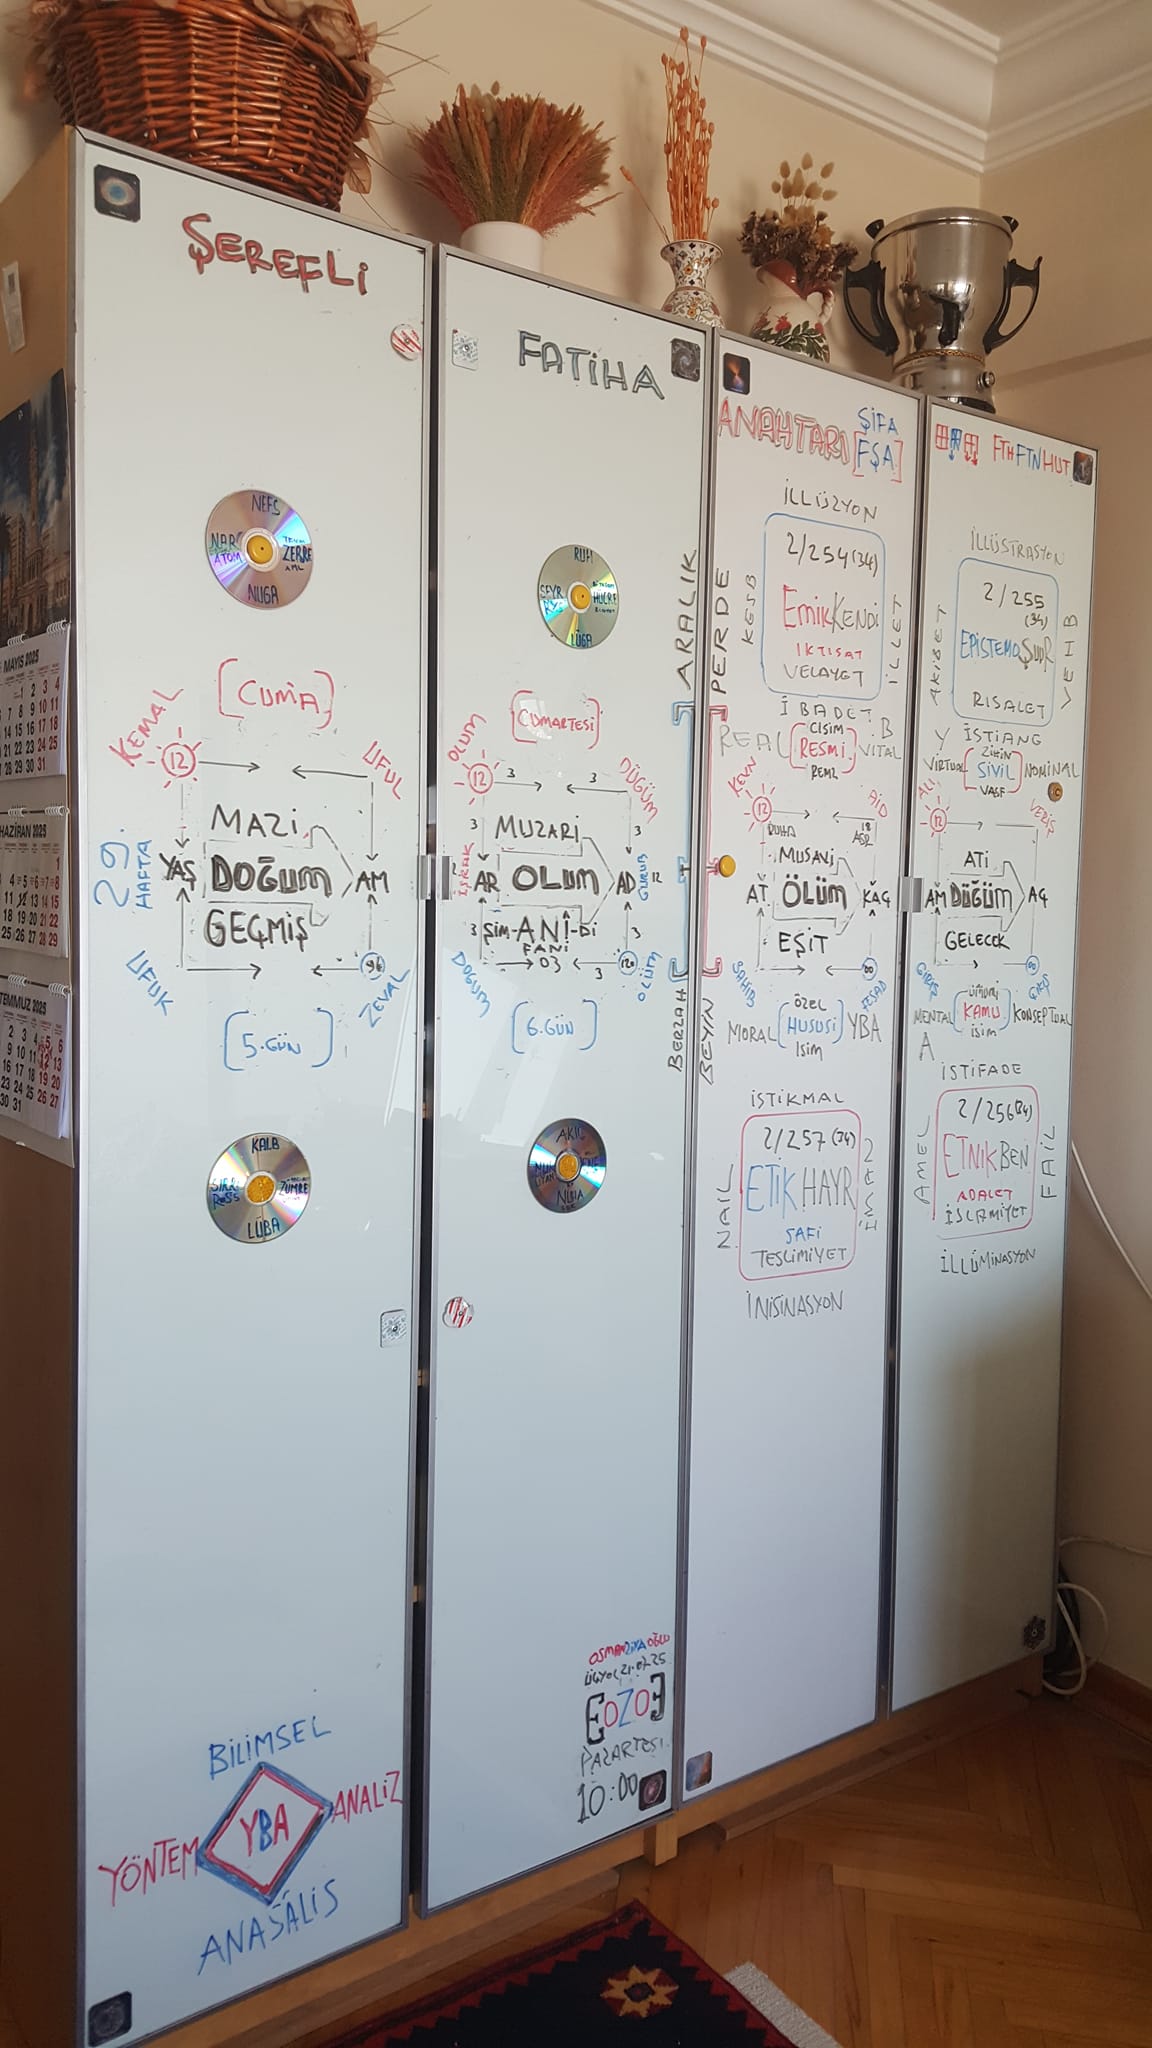 ŞEREFLİ
NEFS
NAR
ATOM
ZERRE
NUGA
[CUMA]
KEMAL
12
UFUL
29.
HAFTA
MAZİ
YAŞ DOĞUM AM
GEÇMİŞ
UFUK
96
ZEVAL
[5.GÜN]
KALB
ZÜMRE
LÜBA
BİLİMSEL
YÖNTEM YBA ANALİZ
ANASÂLİS
FATİHA
RUH
SEYR
HÜCRE
LÜGA
[CUMARTESİ]
OLUM
12
3
3
DÜĞÜM
3
3
MUZARİ
İŞRAK
AR OLUM AD
GURUB
12
3
ŞİM-ANÎ-Dİ
3
FANİ
03
3
DOĞUM
120
ÖLÜM
[6.GÜN]
AKIL
OSMANZİYAOĞLU
21.07.25
EOZOE
PAZARTESİ
10:00
ARALIK
PERDE
BERZAH
BEYİN
ANAHTARI
ŞİFA
[FŞA]
İLLÜZYON
2/254(34)
EmikKENDİ
IKTISAT
VELAYET
KESB
İLLET
İBADET
B
REAL
CISIM
[RESMİ]
REMZ
VİTAL
KEVN
12
AİD
DUHA
18
MUSAVİ
AT ÖLÜM KAÇ
EŞİT
SAHİB
00
FESAD
MORAL
ÖZEL
[HUSUSİ]
İsim
YBA
İSTİKMAL
2/257(34)
ETİKHAYR
SAFİ
TESLİMİYET
NAİL
İNİSİNASYON
FTHFTNHUT
İLLÜSTRASYON
2/255
(34)
EPİSTEMOŞUUR
RISALET
AKİBET
VEHB
Y
İSTİANE
VİRTUAL
ZİHİN
[SİVİL]
VASF
NOMİNAL
12
VERİŞ
ATİ
AM DÜĞÜM AÇ
GELECEK
GİRİŞ
00
MENTAL
[KAMU]
isim
KONSEPTUAL
A
İSTİFADE
2/256(34)
ETNİKBEN
ADALET
İSLAMİYET
AMEL
FAİL
İLLÜMİNASYON
MAYIS 2025
HAZİRAN 2025
TEMMUZ 2025